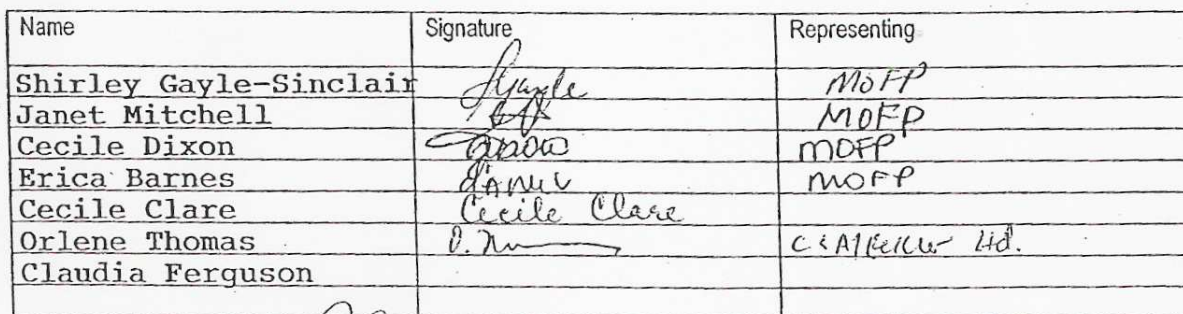 Name Signature Representing
Shirley Gayle-Sinclair SGayle MOFP
Janet Mitchell MOFP
Cecile Dixon MOFP
Erica Barnes MOFP
Cecile Clare Cecile Clare
Orlene Thomas O. Ltd.
Claudia Ferguson